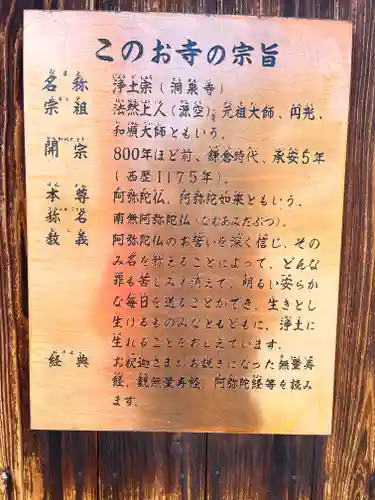 このお寺の宗旨
名称 浄土宗(洞泉寺)
宗祖 法然上人(源空)元祖大師、円光、
和順大師ともいう。
開宗 800年ほど前、鎌倉時代、承安5年
(西暦1175年)。
本尊 阿弥陀仏、阿弥陀如来ともいう。
称名 南無阿弥陀仏(なむあみだぶつ)。
教義 阿弥陀仏のお誓いを深く信じ、その
み名を称えることによって、どんな
罪も苦しみも消えて、明るい安らか
な毎日を送ることができ、生きとし
生けるものみなともどもに、浄土に
生れることをおしえています。
経典 お釈迦さまがお説きになった無量寿
経、観無量寿経、阿弥陀経等を読み
ます。